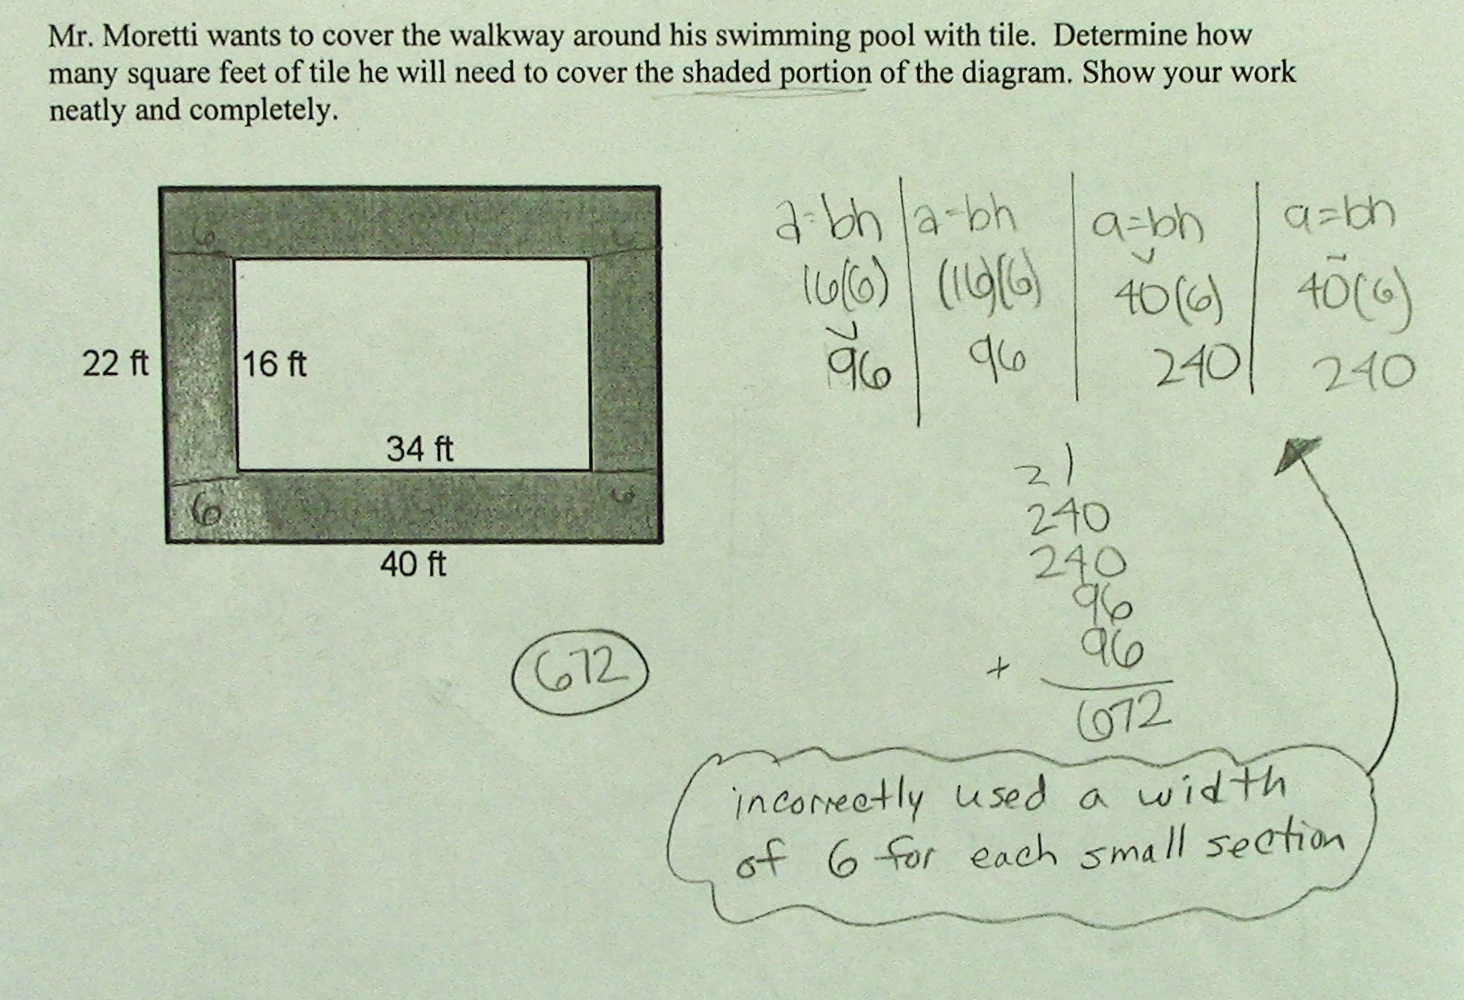 Mr. Moretti wants to cover the walkway around his swimming pool with tile. Determine how
many square feet of tile he will need to cover the shaded portion of the diagram. Show your work
neatly and completely.
6 6
22 ft
16 ft
34 ft
6 6
40 ft
a=bh a=bh a=bh a=bh
16(6) (16)(6) 40(6) 40(6)
96 96 240 240
21
240
240
96
96
+
672
672
incorrectly used a width
of 6 for each small section